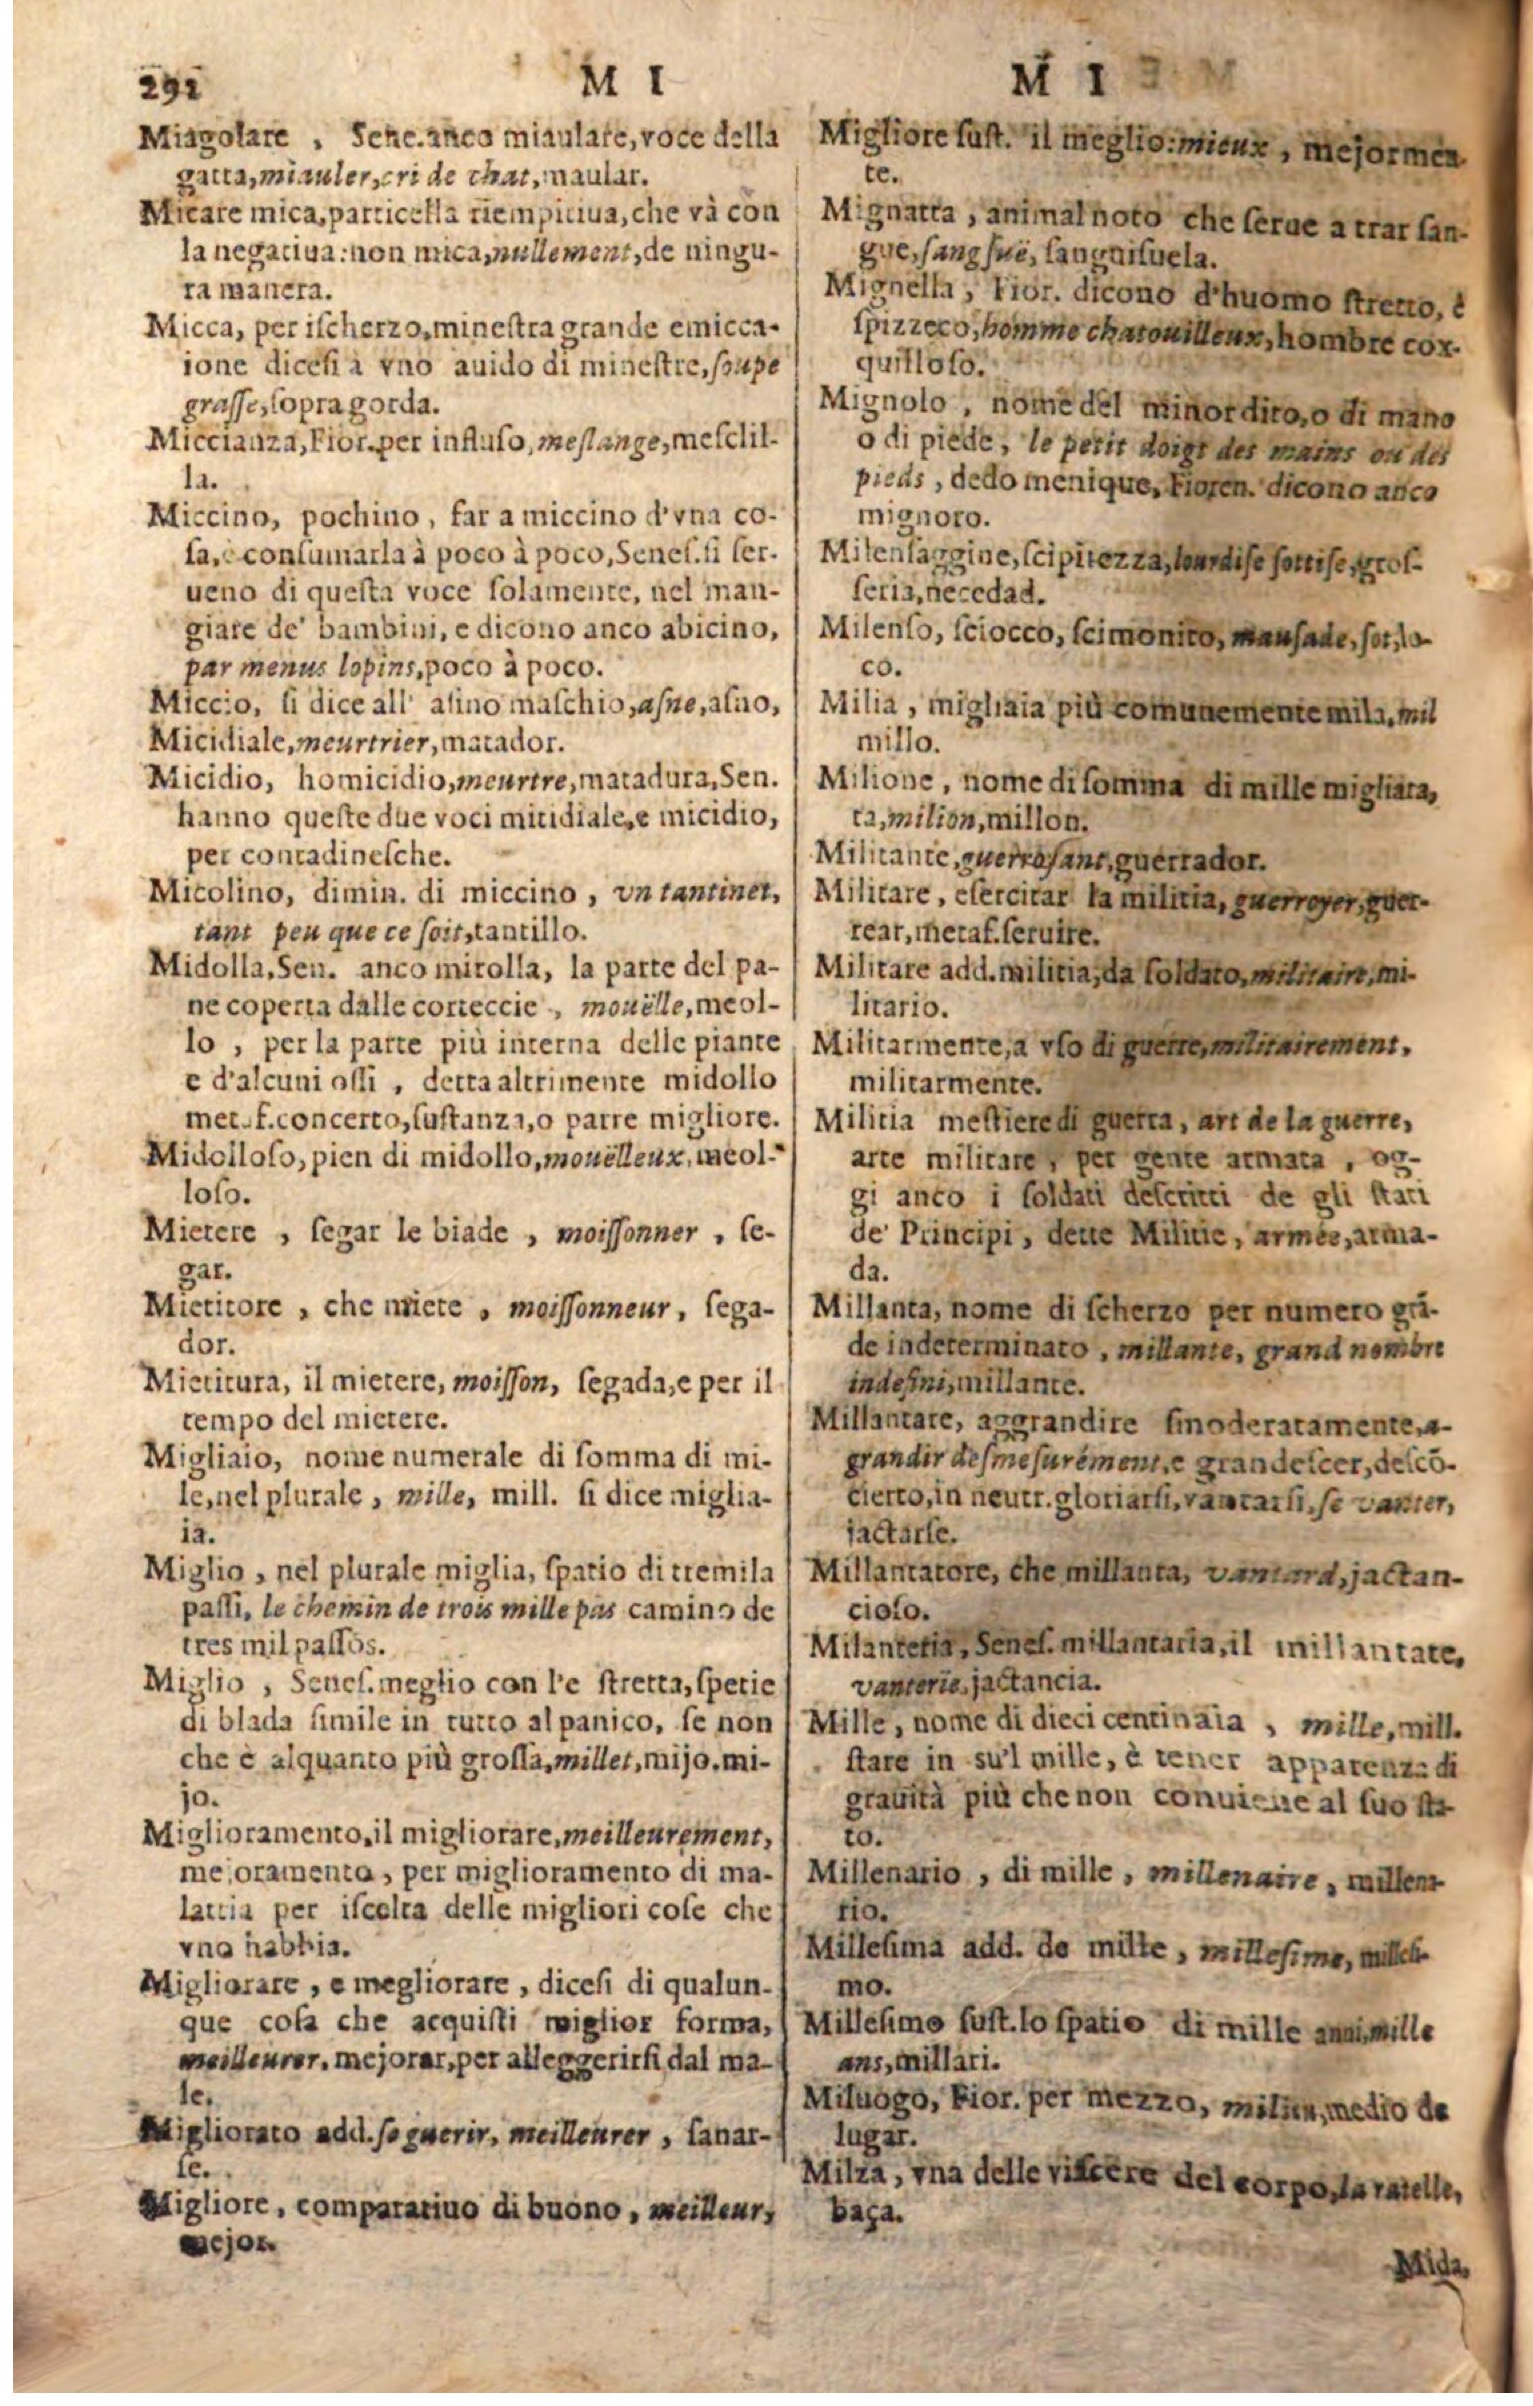 292
M I
Miagolare , Sene.anco miaulare, voce della
gatta, miauler, cri de chat, maular.
Micare mica, particella riempitiua, che và con
la negatiua: non mica, nullement, de ningu-
ra manera.
Micca, per iſcherzo, mineſtra grande e micca-
ione diceſi à vno auido di mineſtre, ſoupe
graſſe, ſopra gorda.
Miccianza, Fior. per influſo, meſlange, meſclil-
la.
Miccino, pochino , far a miccino d'vna co-
ſa, è conſumarla à poco à poco, Seneſ. ſi ſer-
ueno di queſta voce ſolamente, nel man-
giare de' bambini, e dicono anco abicino,
par menus lopins, poco à poco.
Miccio, ſi dice all' aſino maſchio, aſne, aſno,
Micidiale, meurtrier, matador.
Micidio, homicidio, meurtre, matadura, Sen.
hanno queſte due voci micidiale, e micidio,
per contadineſche.
Micolino, dimin. di miccino , vn tantinet,
tant peu que ce ſoit, tantillo.
Midolla, Sen. anco mirolla, la parte del pa-
ne coperta dalle corteccie , mouëlle, meol-
lo , per la parte più interna delle piante
e d'alcuni oſſi , detta altrimente midollo
met.f. concerto, ſuſtanza, o parre migliore.
Midolloſo, pien di midollo, mouëlleux, meol-
loſo.
Mietere , ſegar le biade , moiſſonner , ſe-
gar.
Mietitore , che miete , moiſſonneur, ſega-
dor.
Mietitura, il mietere, moiſſon, ſegada, e per il
tempo del mietere.
Migliaio, nome numerale di ſomma di mi-
le, nel plurale , mille, mill. ſi dice miglia-
ia.
Miglio , nel plurale miglia, ſpatio di tremila
paſſi, le chemin de trois mille pas camino de
tres mil paſſos.
Miglio , Seneſ. meglio con l'e ſtretta, ſpetie
di blada ſimile in tutto al panico, ſe non
che è alquanto più groſſa, millet, mijo. mi-
jo.
Miglioramento, il migliorare, meilleurement,
mejoramento , per miglioramento di ma-
lattia per iſcelta delle migliori coſe che
vno habbia.
Migliorare , e megliorare , diceſi di qualun-
que coſa che acquiſti miglior forma,
meilleurer, mejorar, per alleggerirſi dal ma-
le.
Migliorato add. ſe guerir, meilleurer , ſanar-
ſe.
Migliore, comparatiuo di buono , meilleur,
mejor.
M I
Migliore ſuſt. il meglio: mieux , mejormen-
te.
Mignatta , animal noto che ſerue a trar ſan-
gue, ſangſuë, ſanguiſuela.
Mignella , Fior. dicono d'huomo ſtretto, è
ſpizzeco, homme chatouilleux, hombre cox-
quilloſo.
Mignolo , nome del minor dito, o di mano
o di piede , le petit doigt des mains ou des
pieds , dedo menique, Fioren. dicono anco
mignoro.
Milenſaggine, ſcipitezza, lourdiſe ſottiſe, groſ-
ſeria, necedad.
Milenſo, ſciocco, ſcimonito, mauſade, ſot, lo-
co.
Milia , migliaia più comunemente mila, mil
millo.
Milione , nome di ſomma di mille migliara,
ta, milion, millon.
Militante, guerroſant, guerrador.
Militare , eſercitar la militia, guerroyer, guer-
rear, metaf. ſeruire.
Militare add. militia, da ſoldato, militaire, mi-
litario.
Militarmente, a vſo di guerre, militairement,
militarmente.
Militia meſtiere di guerra , art de la guerre,
arte militare , per gente armata , og-
gi anco i ſoldati deſcritti de gli ſtati
de' Principi , dette Militie, armée, arma-
da.
Millanta, nome di ſcherzo per numero grã-
de indeterminato , millante, grand nombre
indefini, millante.
Millantare, aggrandire ſmoderatamente, a-
grandir deſmeſurément, e grandeſcer, deſcõ-
cierto, in neutr. gloriarſi, vantarſi, ſe vanter,
jactarſe.
Millantatore, che millanta, vantard, jactan-
cioſo.
Milanteria, Seneſ. millantaria, il millantare,
vanterie, jactancia.
Mille , nome di dieci centinaia , mille, mill.
ſtare in su'l mille, è tener apparenza di
grauità più che non conuiene al ſuo ſta-
to.
Millenario , di mille , millenaire , millena-
rio.
Milleſima add. de mille , milleſime, milleſi-
mo.
Milleſimo ſuſt. lo ſpatio di mille anni, mille
ans, millari.
Miluogo, Fior. per mezzo, milieu, medio de
lugar.
Milza, vna delle viſcere del corpo, la ratelle,
baça.
Mida,